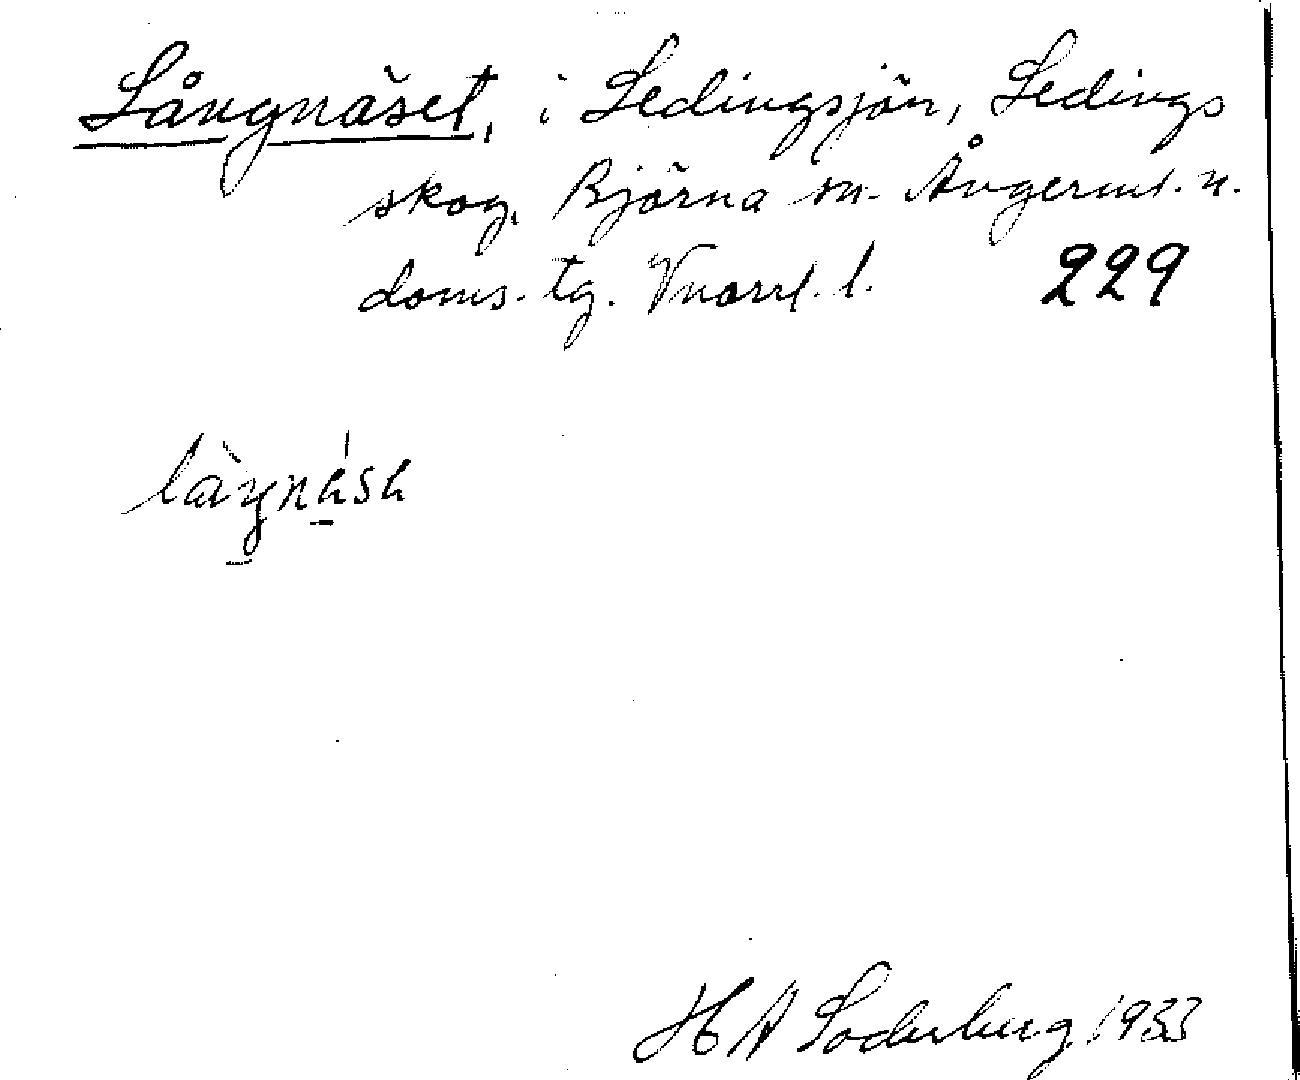 Långnäset, i Ledingsjön, Ledings
skog, Björna sn. Ångerml. n.
doms. tg. Vnorrl. l. 229
H A Söderberg 1933